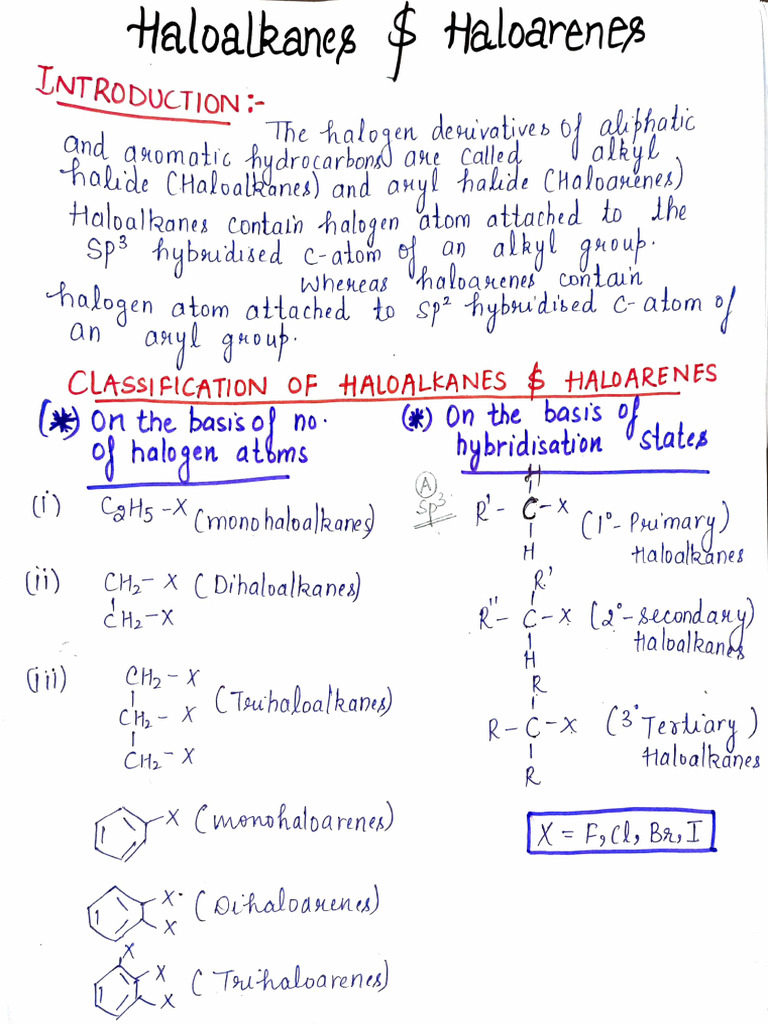 Haloalkanes & Haloarenes
INTRODUCTION :-
The halogen derivatives of aliphatic
and aromatic hydrocarbons are called alkyl
halide (Haloalkanes) and aryl halide (Haloarenes)
Haloalkanes contain halogen atom attached to the
Sp³ hybridised C-atom of an alkyl group.
Whereas haloarenes contain
halogen atom attached to Sp² hybridised C-atom of
an aryl group.
CLASSIFICATION OF HALOALKANES & HALOARENES
(*) On the basis of no.
of halogen atoms
(i) C2H5 - X (monohaloalkanes)
(ii) CH2 - X (Dihaloalkanes)
CH2 - X
(iii) CH2 - X
CH2 - X (Trihaloalkanes)
CH2 - X
X (monohaloarenes)
X (Dihaloarenes)
X
X
X (Trihaloarenes)
X
(*) On the basis of
hybridisation states
(A)
Sp³
H
R' - C - X (1°- Primary)
H Haloalkanes
R'
R" - C - X (2°- secondary)
H Haloalkanes
R
R - C - X (3° Tertiary)
R Haloalkanes
X = F, Cl, Br, I